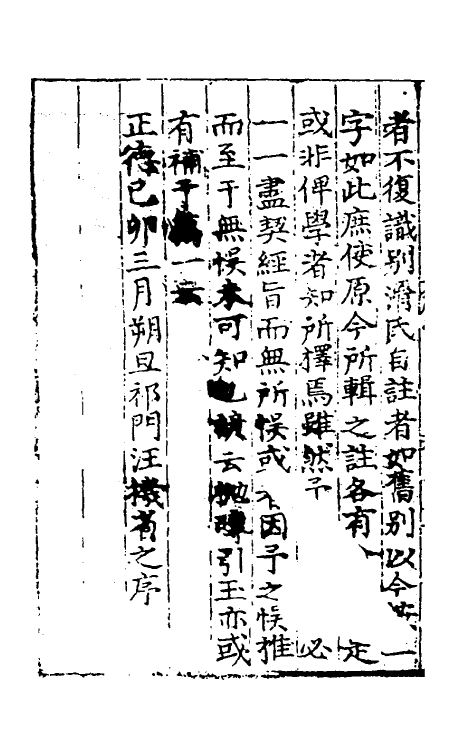 者不復識別滑氏自註者如舊別以今一
字如此庶使原今所輯之註各有定
或非俾學者知所擇焉雖然予必
一一盡契經旨而無所悮或因予之悮推
而至于無悮未可知也云拋磚引玉亦或
有補于萬一云
正德己卯三月朔旦祁門汪機省之序